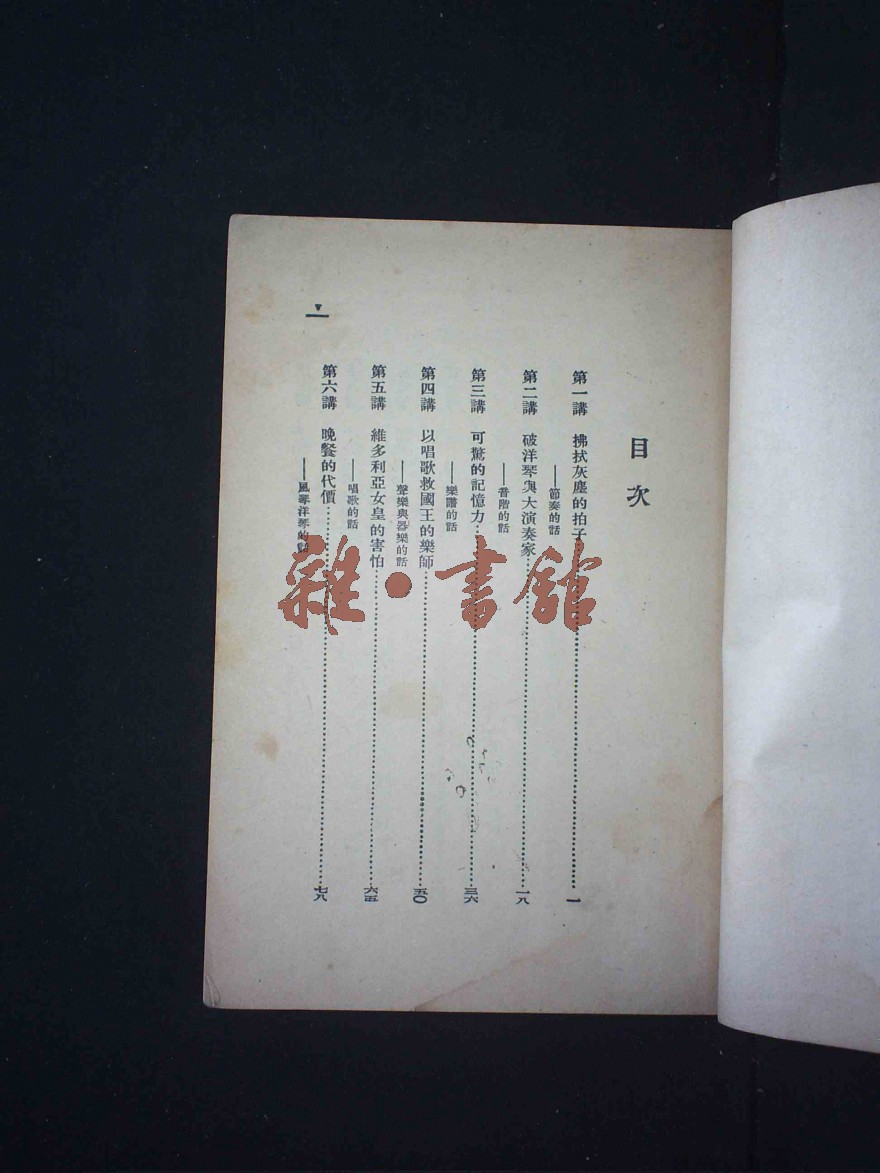 目次
第一講 拂拭灰塵的拍子……一
——節奏的話
第二講 破洋琴與大演奏家……一八
——音階的話
第三講 可驚的記憶力……三六
——樂譜的話
第四講 以唱歌救國王的樂師……五〇
——聲樂與器樂的話
第五講 維多利亞女皇的害怕……六五
——唱歌的話
第六講 晚餐的代價……七九
——風琴洋琴的話
一
雜·書館